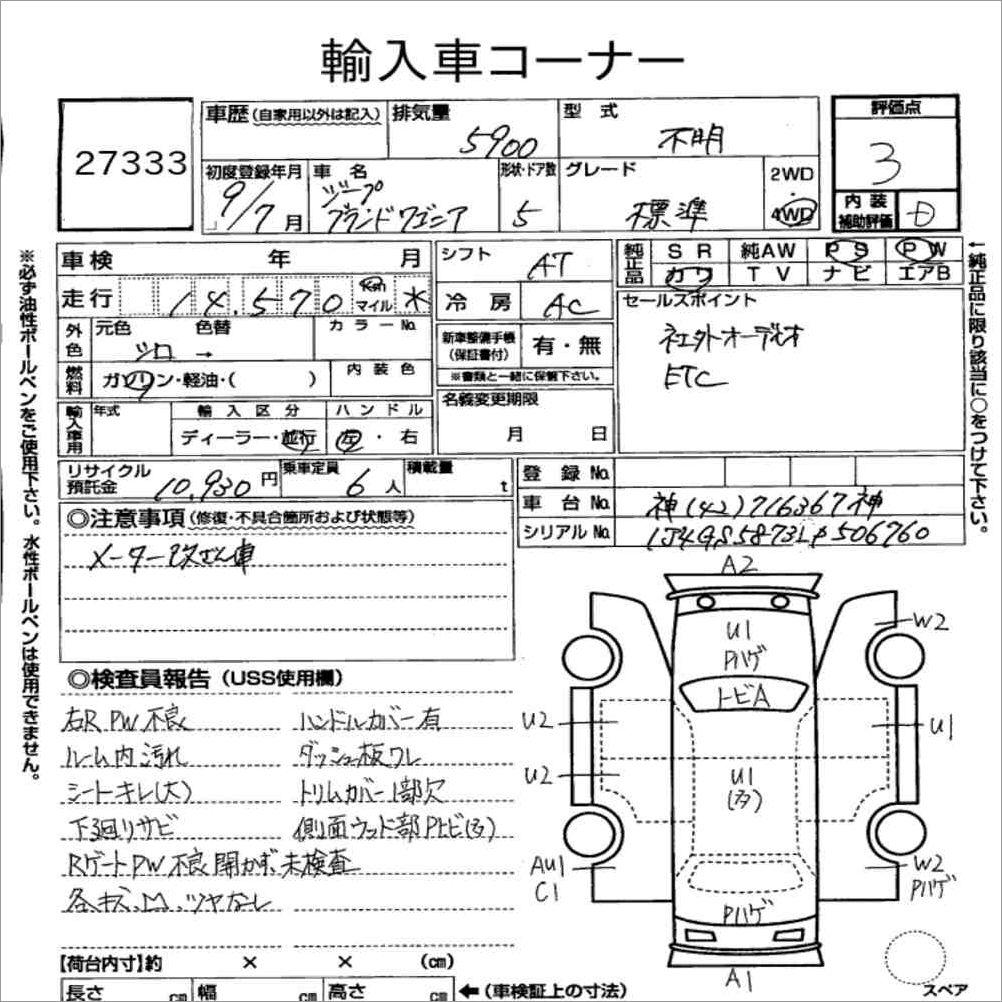 輸入車コーナー
27333
車歴 (自家用以外は記入)
排気量 5900
型式 不明
評価点 3
初度登録年月 9/7月
車名 ジープ
グランドワゴニア
形状・ドア数 5
グレード 標準
2WD・4WD
内装補助評価 D
車検 年 月
シフト AT
純正品 SR 純AW PS PW
カワ TV ナビ エアB
走行 14,570 Km マイル
冷房 AC
セールスポイント
社外オーディオ
ETC
外色 元色 シロ 色替 → カラーNo.
新車整備手帳(保証書付) 有・無
※書類と一緒に保管下さい。
燃料 ガソリン・軽油・( ) 内装色
名義変更期限 月 日
輸入車用 年式 輸入区分 ハンドル
ディーラー・並行 左・右
リサイクル預託金 10,930円
乗車定員 6人
積載量 t
登録No.
車台No. 神(42)716367神
シリアルNo.
◎注意事項 (修復・不具合箇所および状態等)
メーター改ざん車
◎検査員報告 (USS使用欄)
右R、PW不良 ハンドルカバー有
ルーム内汚れ ダッシュ板ワレ
シートキレ(大) トリムカバー1部欠
下廻りサビ 側面ウッド部Pトビ(多)
RゲートPW不良開かず、未検査
各、キズ、凹、ツヤなし
【荷台内寸】約 × × (cm)
長さ cm 幅 cm 高さ cm ←(車検証上の寸法)
A2
U1
Pハゲ
W2
トビA
U2
U1
U2
U1
(多)
AU1
C1
W2
Pハゲ
Pハゲ
A1
スペア
※必ず油性ボールペンをご使用下さい。水性ボールペンは使用できません。
←純正品に限り該当に○をつけて下さい。